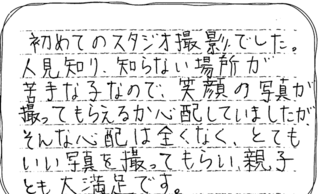 初めてのスタジオ撮影でした。
人見知り、知らない場所が
苦手な子なので、笑顔の写真が
撮ってもらえるか心配していましたが
そんな心配は全くなく、とても
いい写真を撮ってもらい、親子
とも大満足です。